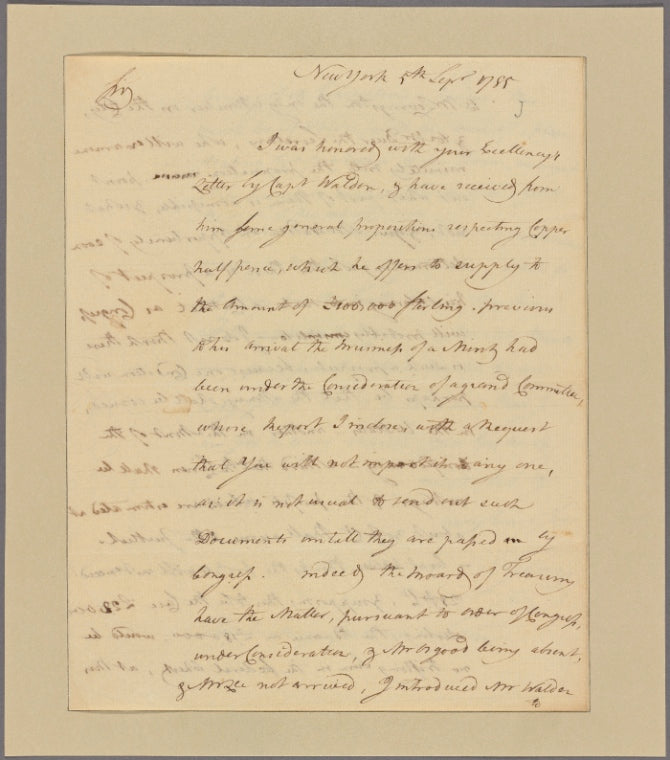 New York 5th Sepr 1785
Sir
I was honored with your Excellency's
Letter by Capt Waldon, & have received from
him some general propositions respecting Copper
halfpence, which he offers to supply to
the Amount of £100,000 Sterling. previous
to his arrival the business of a Mint had
been under the Consideration of a grand Committee,
whose Report I inclose with a Request
that You will not impart it to any one,
as it is not usual to send out such
Documents untill they are passed on by
Congress. indeed the board of Treasury
have the Matter, pursuant to order of Congress,
under Consideration, & Mr Osgood being absent,
& Mr Lee not arrived, I introduced Mr Waldon
to